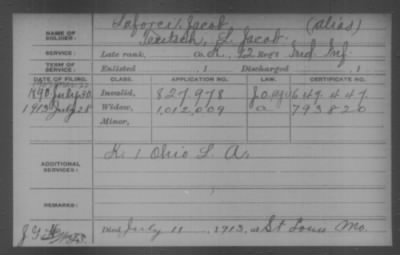 NAME OF SOLDIER: Jacob, (alias)
L. Jacob.
SERVICE: Late rank, Co. 92 Reg't Ind. Inf.
TERM OF SERVICE: Enlisted , 1 Discharged , 1
DATE OF FILING. CLASS. APPLICATION NO. LAW. CERTIFICATE NO.
1890 July Invalid, 827,978 647,447
1913 July 28 Widow, 1,012,009 a 793820
Minor,
ADDITIONAL SERVICES: K. 1 Ohio L. Ar.
REMARKS:
Died July 11, 1913, at St Louis Mo.